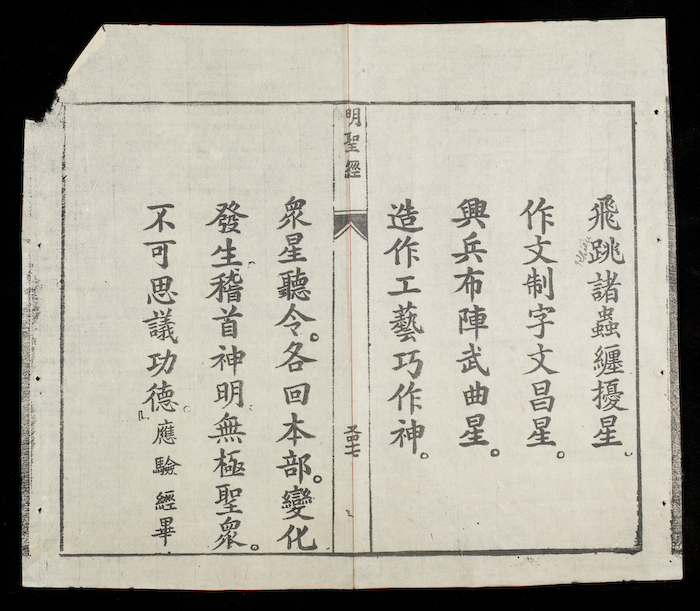 飛跳諸蟲纏擾星。
作文制字文昌星。
興兵布陣武曲星。
造作工藝巧作神。
明聖經
衆星聽令。各回本部。變化
發生。稽首神明無極聖衆。
不可思議功德。應驗經畢